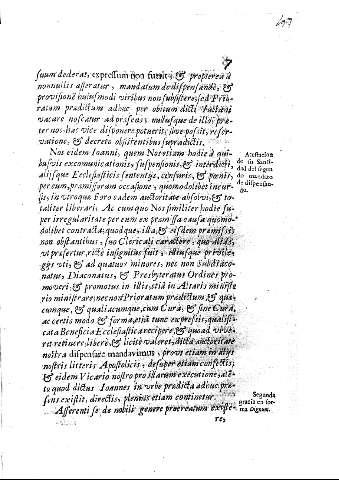 7
suum dederat, expressum non fuerit, & propterea à
nonnullis asseratur, mandatum de dispensando, &
provisionē huiusmodi viribus non subsistere, sed Prio-
ratum prædictum adhuc per obitum dicti
vacare noscatur ad præsens, nullusque de illo præ-
ter nos hac vice disponere potuerit, sive possit, reser-
vatione, & decreto obsistentibus supradictis.
Nos eidem Ioanni, quem Notarium hodie à qui-
busvis excomunicationis, suspensionis, & interdicti,
alijsque Ecclesiasticis sententijs, censuris, & pœnis,
per eum, præmissorum occasione, quomodolibet incur-
sis, in utroque foro eadem auctoritate absolvi, & to-
taliter liberari. Ac cumque Nos similiter hodie su-
per irregularitate per eum ex præmissa causa quomo-
dolibet contracta, quodque, illa, & eisdem præmissis
non obstantibus, suo Clericali caractere, quo aliàs,
ut præfertur, ritè insignitus fuit, illiusque privile-
gijs uti, & ad quatuor minores, nec non Subdiaco-
natus, Diaconatus, & Presbyteratus Ordines pro-
moveri, & promotus in illis, etiā in Altaris ministe-
rio ministrare, nec non Prioratum prædictum, & quæ-
cumque, & qualiacumque, cum Cura, & sine Cura,
ac certis modo & forma, etiā tunc expressis, qualifi-
cata Beneficia Ecclesiastica recipere, & quoad vive-
ret retinere, liberè, & licitè valeret, dicta auctoritate
nostra dispensari mandavimus, prout etiam in alijs
nostris litteris Apostolicis, desuper etiam confectis,
& eidem Vicario nostro pro illarum executione,
to quod dictus Ioannes in urbe prædicta adhuc præ-
sens existit, directis, plenius etiam continetur.
Asserenti se de nobili genere procreatum existe-
re,
Assertacion
de su Santi-
dad del segun
do mandato
de dispensa-
cio.
Segunda
gracia en for-
ma Dignum.